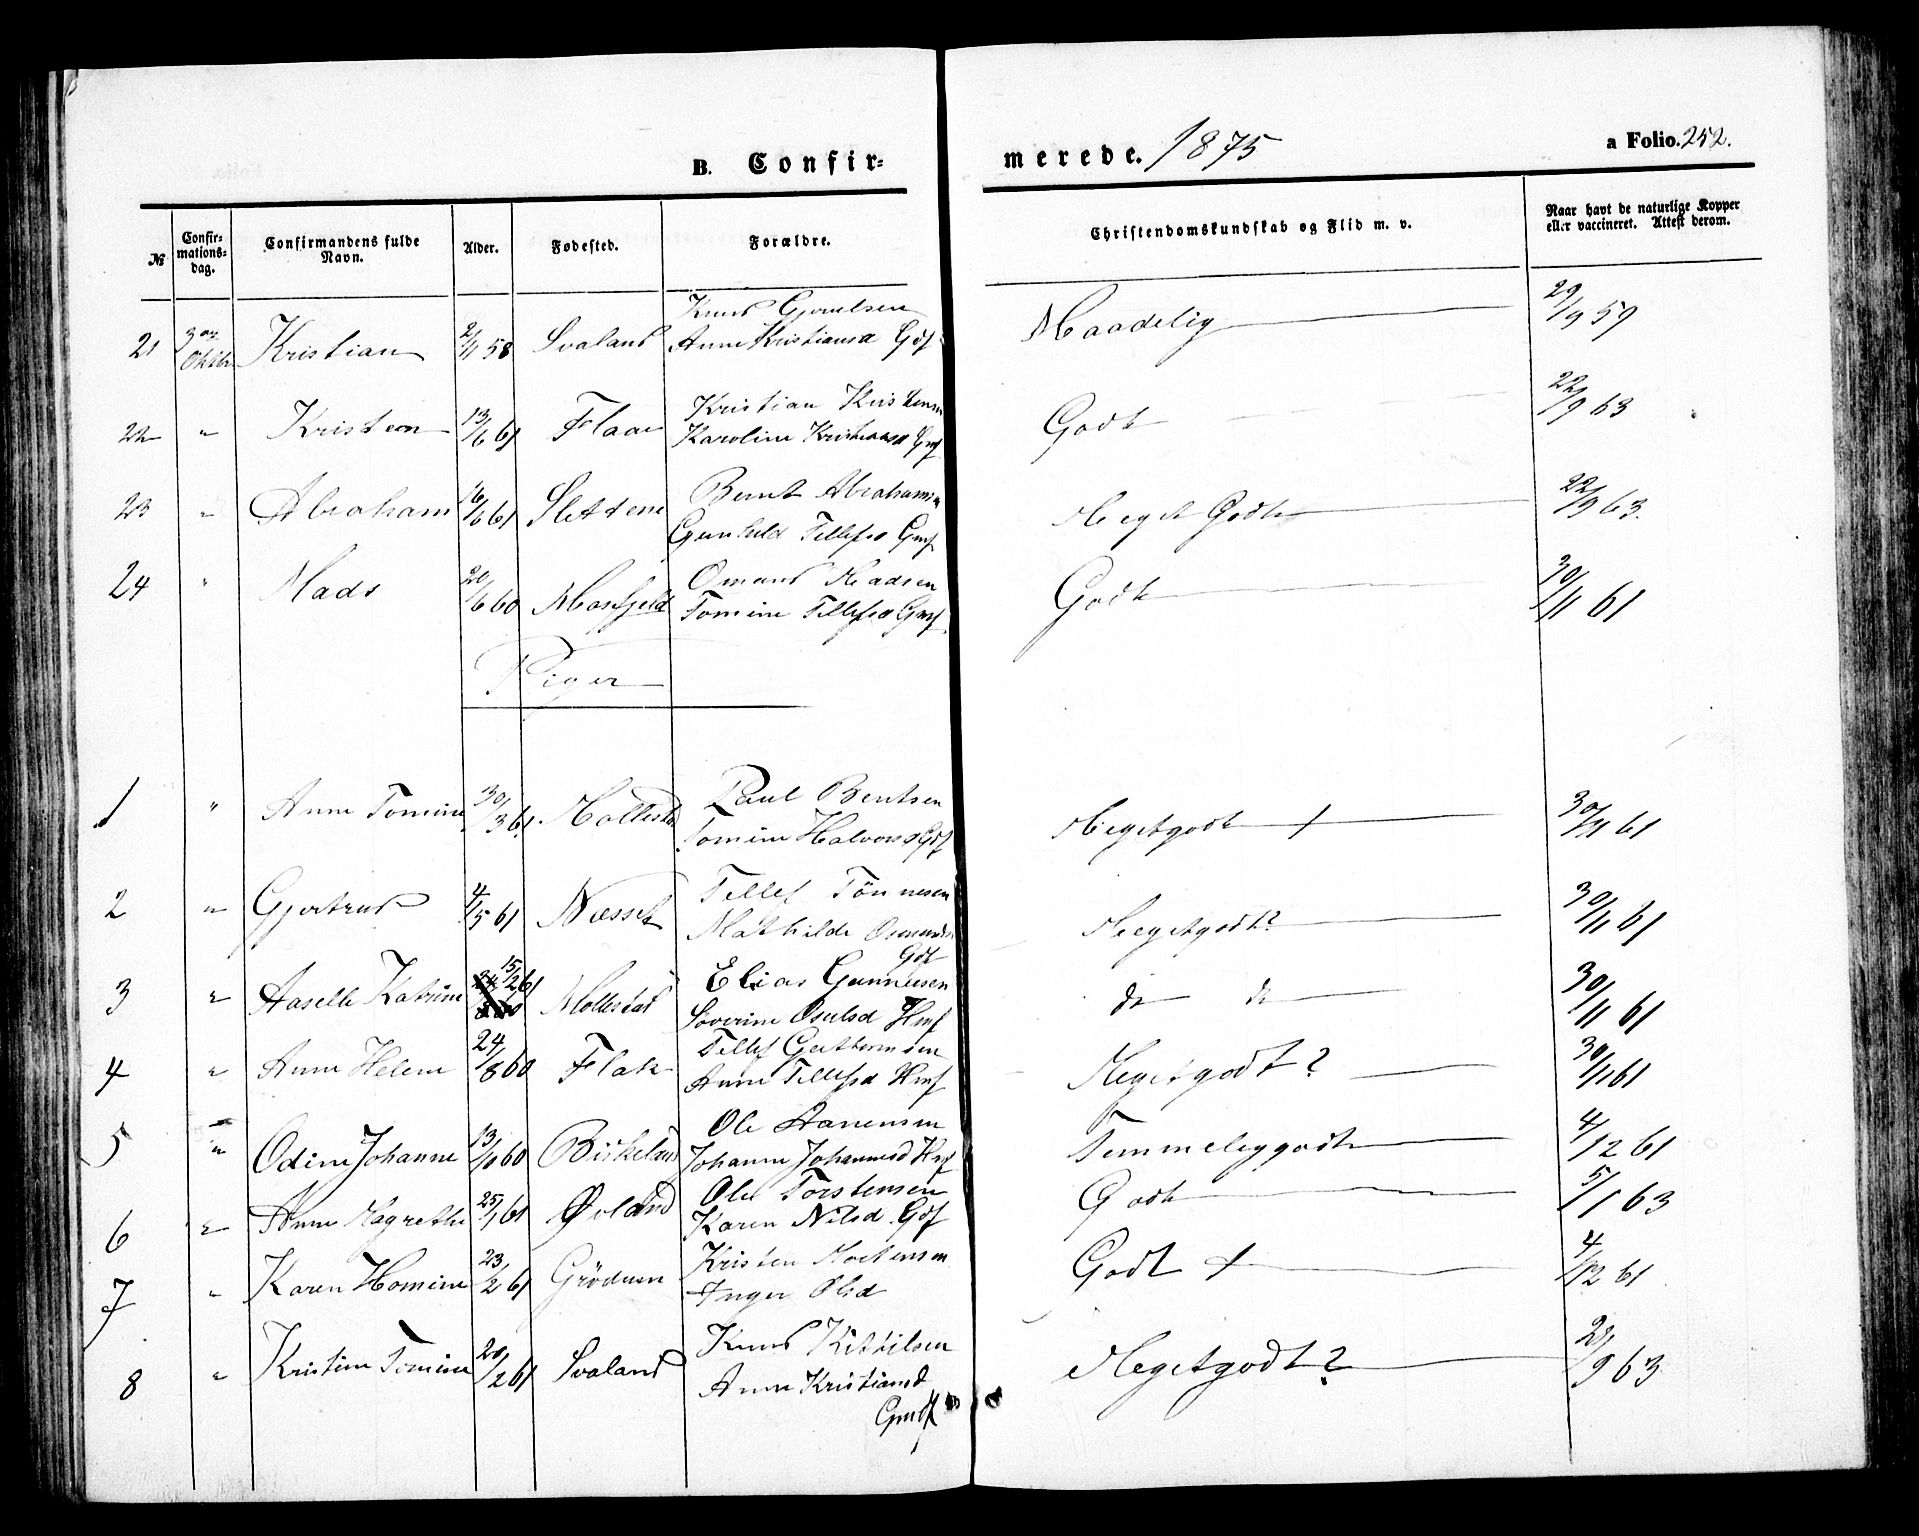 B. Confir-
merede. 1875
a Folio. 252.
№
Confir-
mations-
dag.
Confirmandens fulde
Navn.
Alder.
Fødested.
Forældre.
Christendomskundskab og Flid m. v.
Naar havt de naturlige Kopper
eller vaccineret. Attest derom.
Knud
21 3die Oktbr Kristian 2/11 58 Svaland Anne Kristiansd Gdf Maadelig 29/9 59
Kristian Kristensen
22 " Kristen 13/6 61 Flaa Karoline Godt 22/9 63
Bernt Abrahamsen
23 " Abraham 16/6 61 Slettene Gunhild Tellefsd Meget Godt 22/9 63.
Osmund Madsen
24 " Mads 20/6 60 Mosfjeld Tomine Tellefsd Godt 30/11 61
Piger
Paul Bentsen
1 " Anne Tomine 30/3 61 Mollestad Tomine Halvorsd Gdf Megetgodt + 30/11 61
Tellef Tönnesen
2 " Gjertrud 4/5 61 Næsset Mathilde Megetgodt? 30/11 61
Gdf
Elias Gunnersen
3 " Aaselle Katrine 15/2 61 Mollestad Severine Osulsd Hmf do do 30/11 61
Tellef Guttormsen
4 " Anne Helene 24/8 60 Flak Anne Tellefsd Hmf Megetgodt? 30/11 61
Ole Aanensen
5 " Odine Johanne 60 Birkeland Johanne Johannesd Hmf Temmeliggodt 4/12 61
Ole Torstensen
6 " Anne Magrethe 25/1 61 Øvland Karen Nilsd Gdf Godt 5/1 63
Kristen Mortensen
7 " Karen Homine 23/2 61 Grödum Inger Olsd Godt + 4/12 61
Knud Kittilsen
8 " Kristine Tomine 20/2 61 Svaland Anne Kristiansd Megetgodt? 9 63